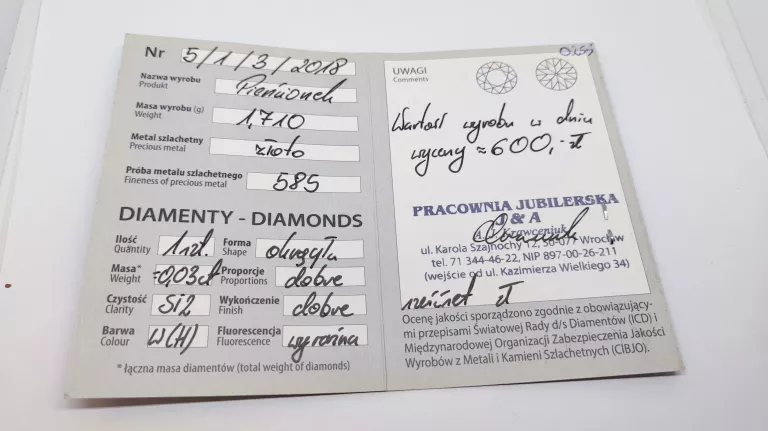 Nr 5/1/3/2018
Nazwa wyrobu Pierścionek
Produkt
Masa wyrobu (g) 1,710
Weight
Metal szlachetny złoto
Precious metal
Próba metalu szlachetnego 585
Fineness of precious metal
DIAMENTY - DIAMONDS
Ilość 1szt. Forma okrągła
Quantity Shape
Masa* ≈0,03ct Proporcje dobre
Weight Proportions
Czystość Si2 Wykończenie dobre
Clarity Finish
Barwa W(H) Fluorescencja
Colour Fluorescence
* łączna masa diamentów (total weight of diamonds)
UWAGI
Comments
Wartość wyrobu w dniu
wyceny ≈ 600,- zł
PRACOWNIA JUBILERSKA
J & A
Krawceniuk
ul. Karola Szajnochy 12, 50-077 Wrocław
tel. 71 344-46-22, NIP 897-00-26-211
(wejście od ul. Kazimierza Wielkiego 34)
sześćset zł
Ocenę jakości sporządzono zgodnie z obowiązujący-
mi przepisami Światowej Rady d/s Diamentów (ICD) i
Międzynarodowej Organizacji Zabezpieczenia Jakości
Wyrobów z Metali i Kamieni Szlachetnych (CIBJO).